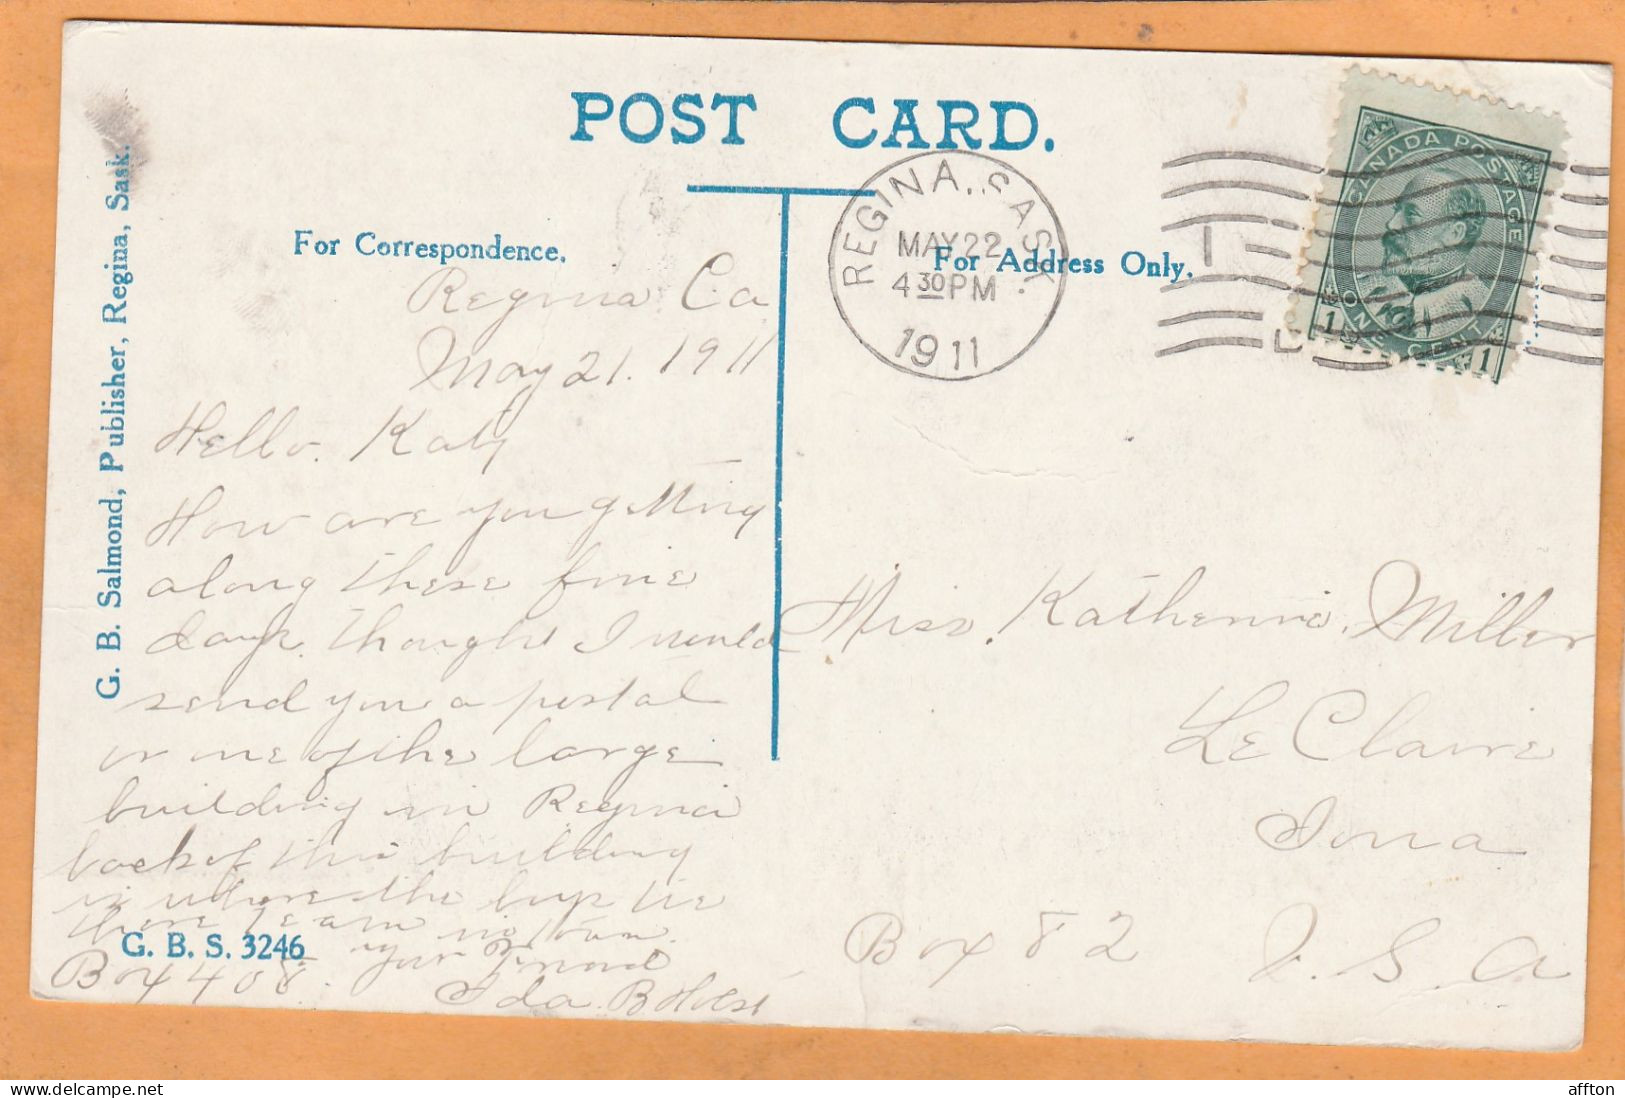 POST CARD.
For Correspondence.
For Address Only.
G. B. Salmond, Publisher, Regina, Sask.
REGINA, SASK.
MAY 22
4 30 PM
1911
CANADA POSTAGE
1 ONE CENT 1
Regina Ca
May 21. 1911
Hello. Katy
How are you getting
along these fine
days. thought I would
send you a postal
or one of the large
building in Regina
back of this building
is where the boys tie
there team in town.
your Friend
Box 408. Ida B Holst
G. B. S. 3246
Miss. Katherine. Miller
Le Claire
Iowa
Box 82 U. S. A
affton